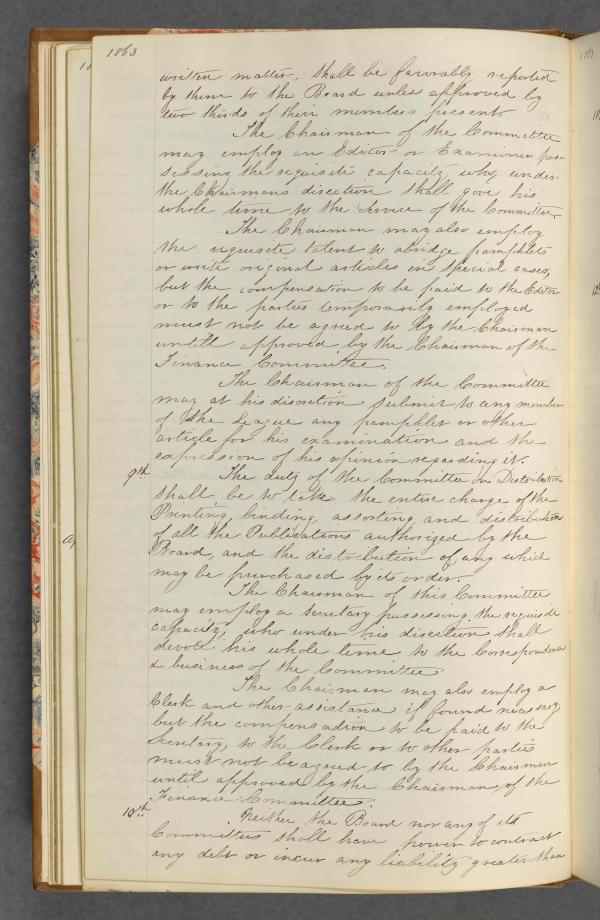 1863
written matter, shall be favorably reported
by them to the Board unless approved by
two thirds of their members present.
The Chairman of the Committee
may employ an Editor or Examiner pos-
sessing the requisite capacity, who, under
the Chairmans discretion shall give his
whole time to the service of the Committee.
The Chairman may also employ
the requisite talent to abridge pamphlets
or write original articles in special cases,
but the compensation to be paid to the Editor
or to the parties temporarily employed
must not be agreed to by the Chairman
untill approved by the Chairman of the
Finance Committee.
The Chairman of the Committee
may at his discretion submit to any member
of the League any pamphlet or other
article for his examination and the
expression of his opinion regarding it.
9th The duty of the Committee on Distribution
shall be to take the entire charge of the
Printing, binding, assorting, and distribution
of all the Publications authorized by the
Board, and the distribution of any which
may be purchased by its order.
The Chairman of this Committee
may employ a Secretary possessing the requisite
capacity, who under his discretion shall
devote his whole time to the Correspondence
& business of the Committee
The Chairman may also employ a
Clerk and other assistance if found necessary,
but the compensation to be paid to the
Secretary, to the Clerk or to other parties
must not be agreed to by the Chairman
until approved by the Chairman of the
Finance Committee.
10th Neither the Board nor any of its
Committees shall have power to contract
any debt or incur any liability greater than